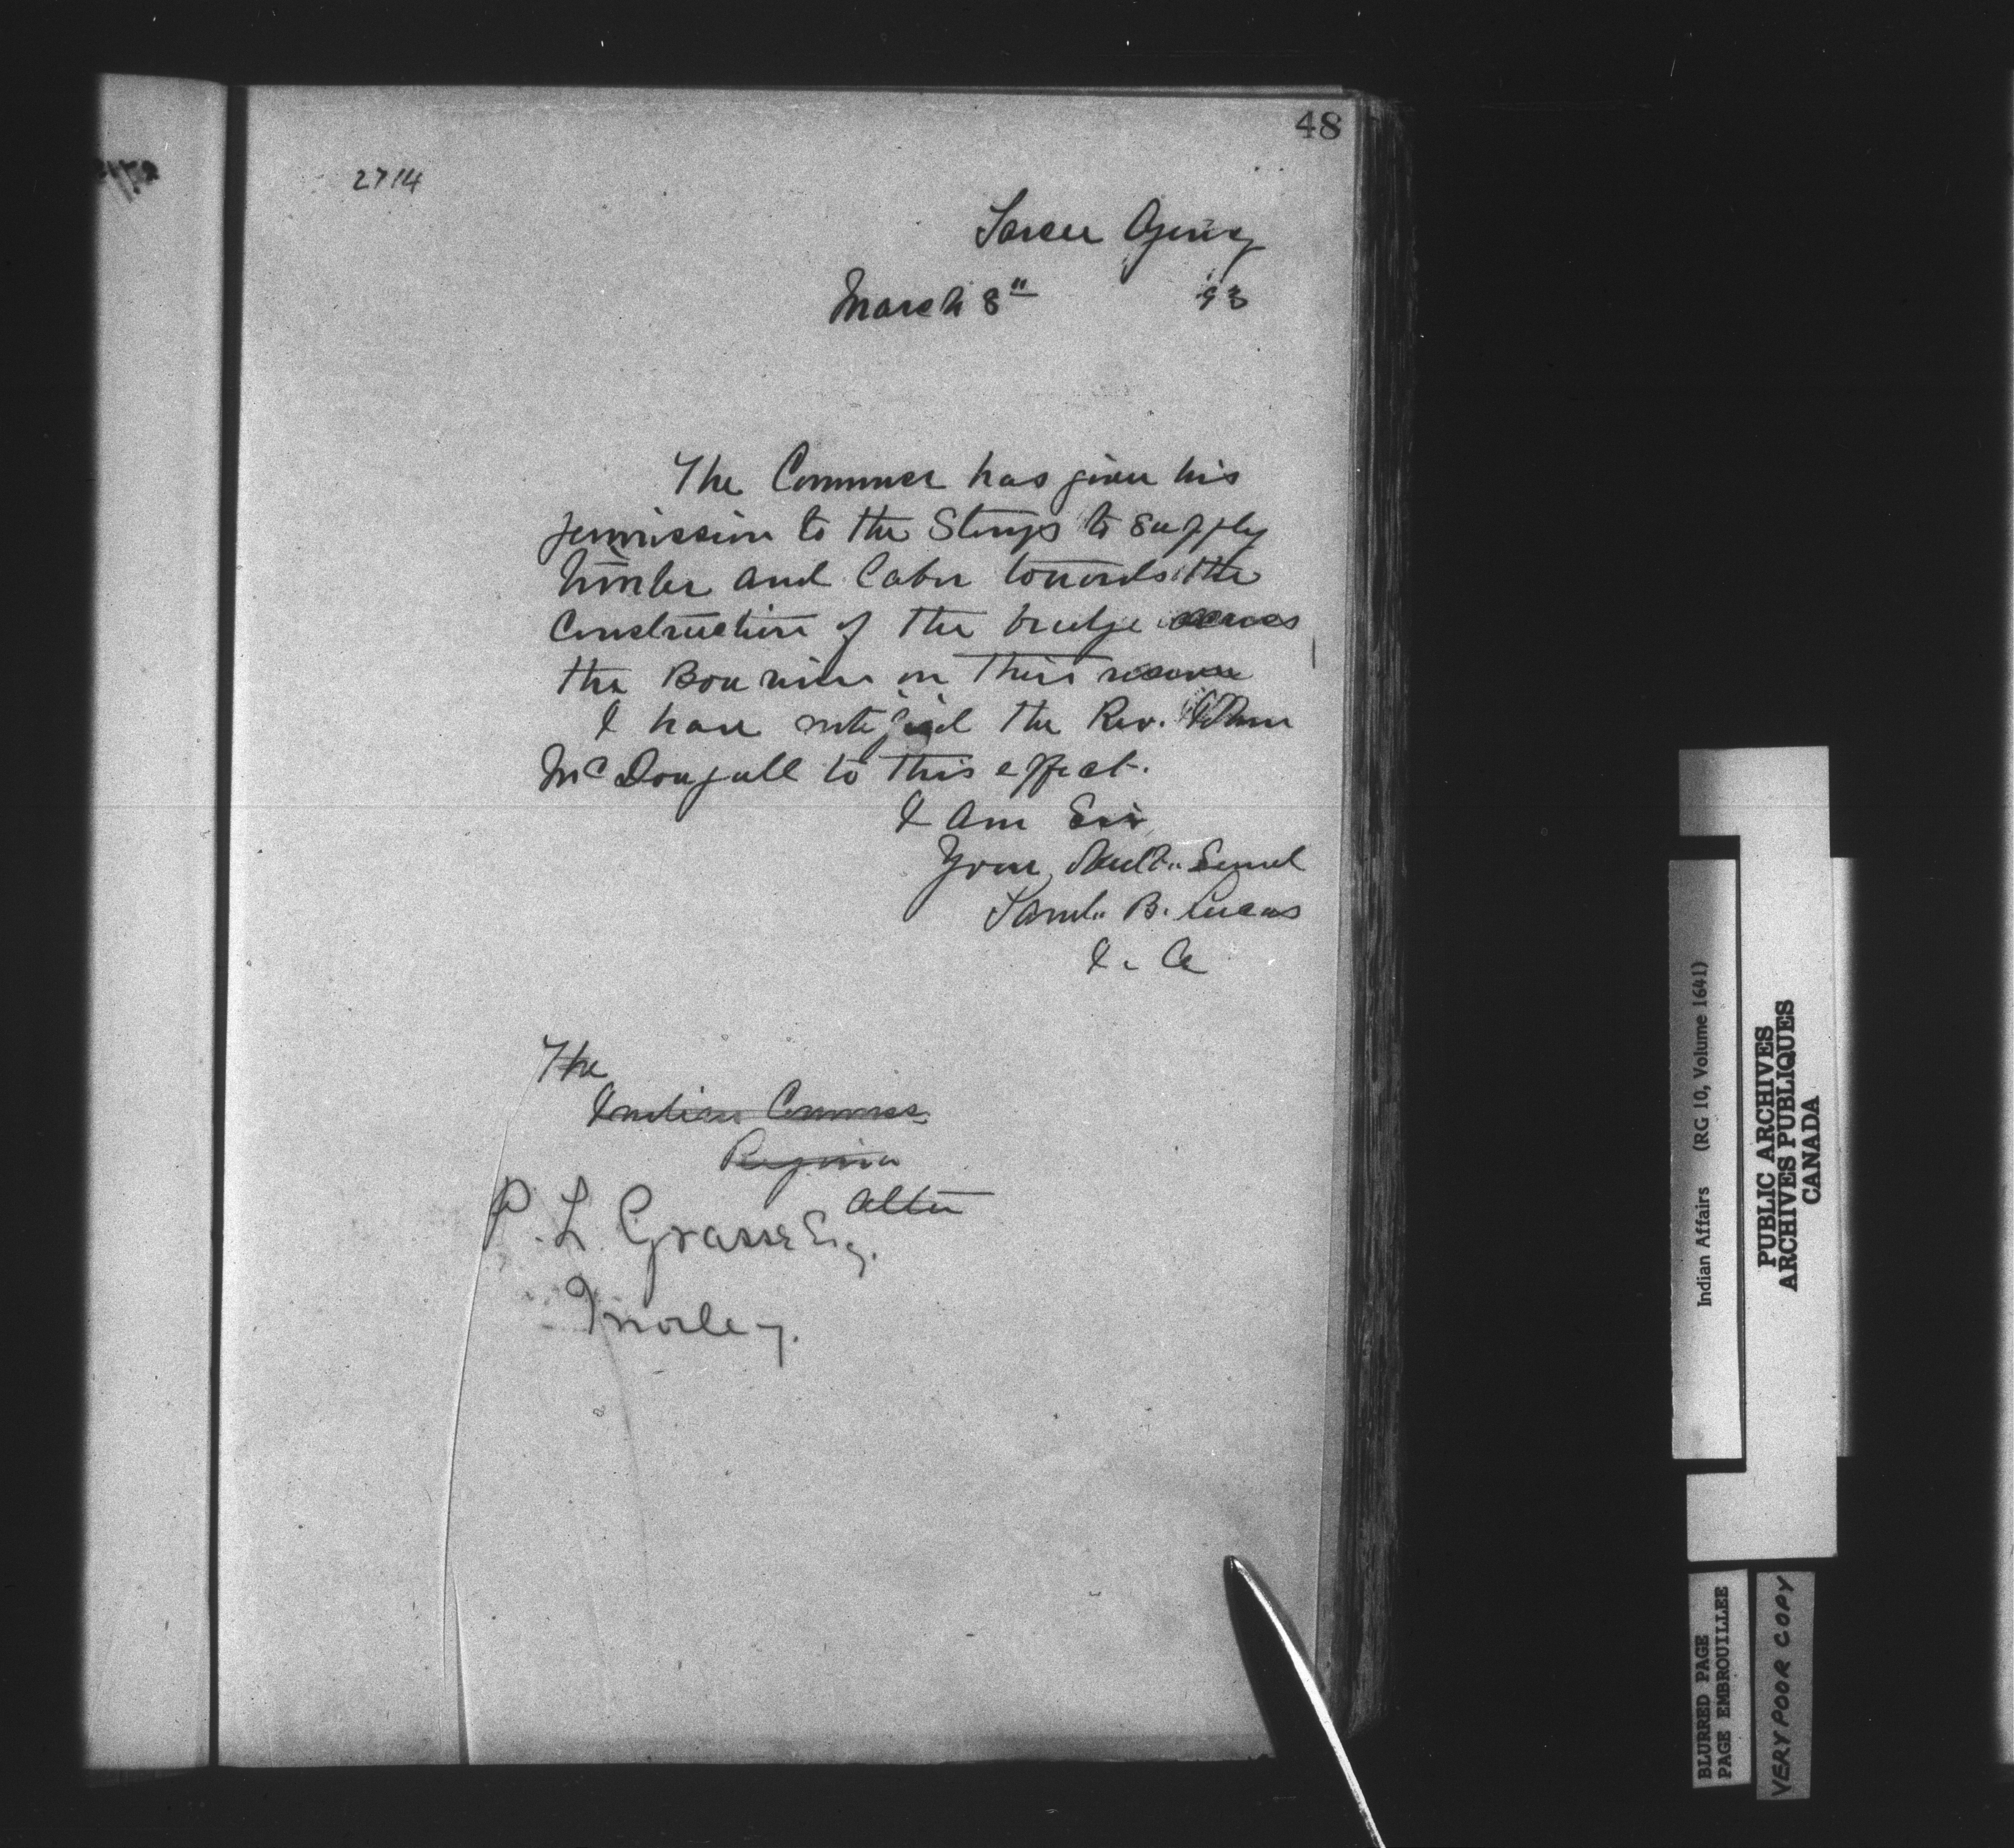 48
2714
Sarcee Agency
March 8" 93
The Commner has given his
permission to the Stonys to supply
timber and labor towards the
Construction of the bridge across
the Bow river on their reserve
I have notified the Rev. John
McDougall to this effect.
I am Sir
Your Obedt. Servt
Saml. B. Lucas
I. A
The
Indian Commss.
Regina
P. L. Grasse Esq.
Morley.
Indian Affairs (RG 10, Volume 1641)
PUBLIC ARCHIVES
ARCHIVES PUBLIQUES
CANADA
BLURRED PAGE
PAGE EMBROUILLEE
VERY POOR COPY